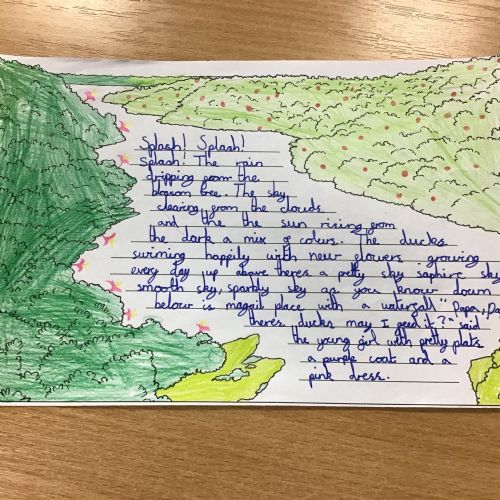 Splash! Splash!
Splash! The rain
dripping from the
blossom tree. The sky
clearing from the clouds
and the the sun rising from
the dark a mix of colurs. The ducks
swiming happily with new flowers growing
every day up above theres a pretty sky saphire sky
smooth sky, sparkly sky as you know down
below is magiit place with a waterfall "Papa, Pa
theres ducks may I feed it?" said
the young girl with pretty plats
a purple coat and a
pink dress.